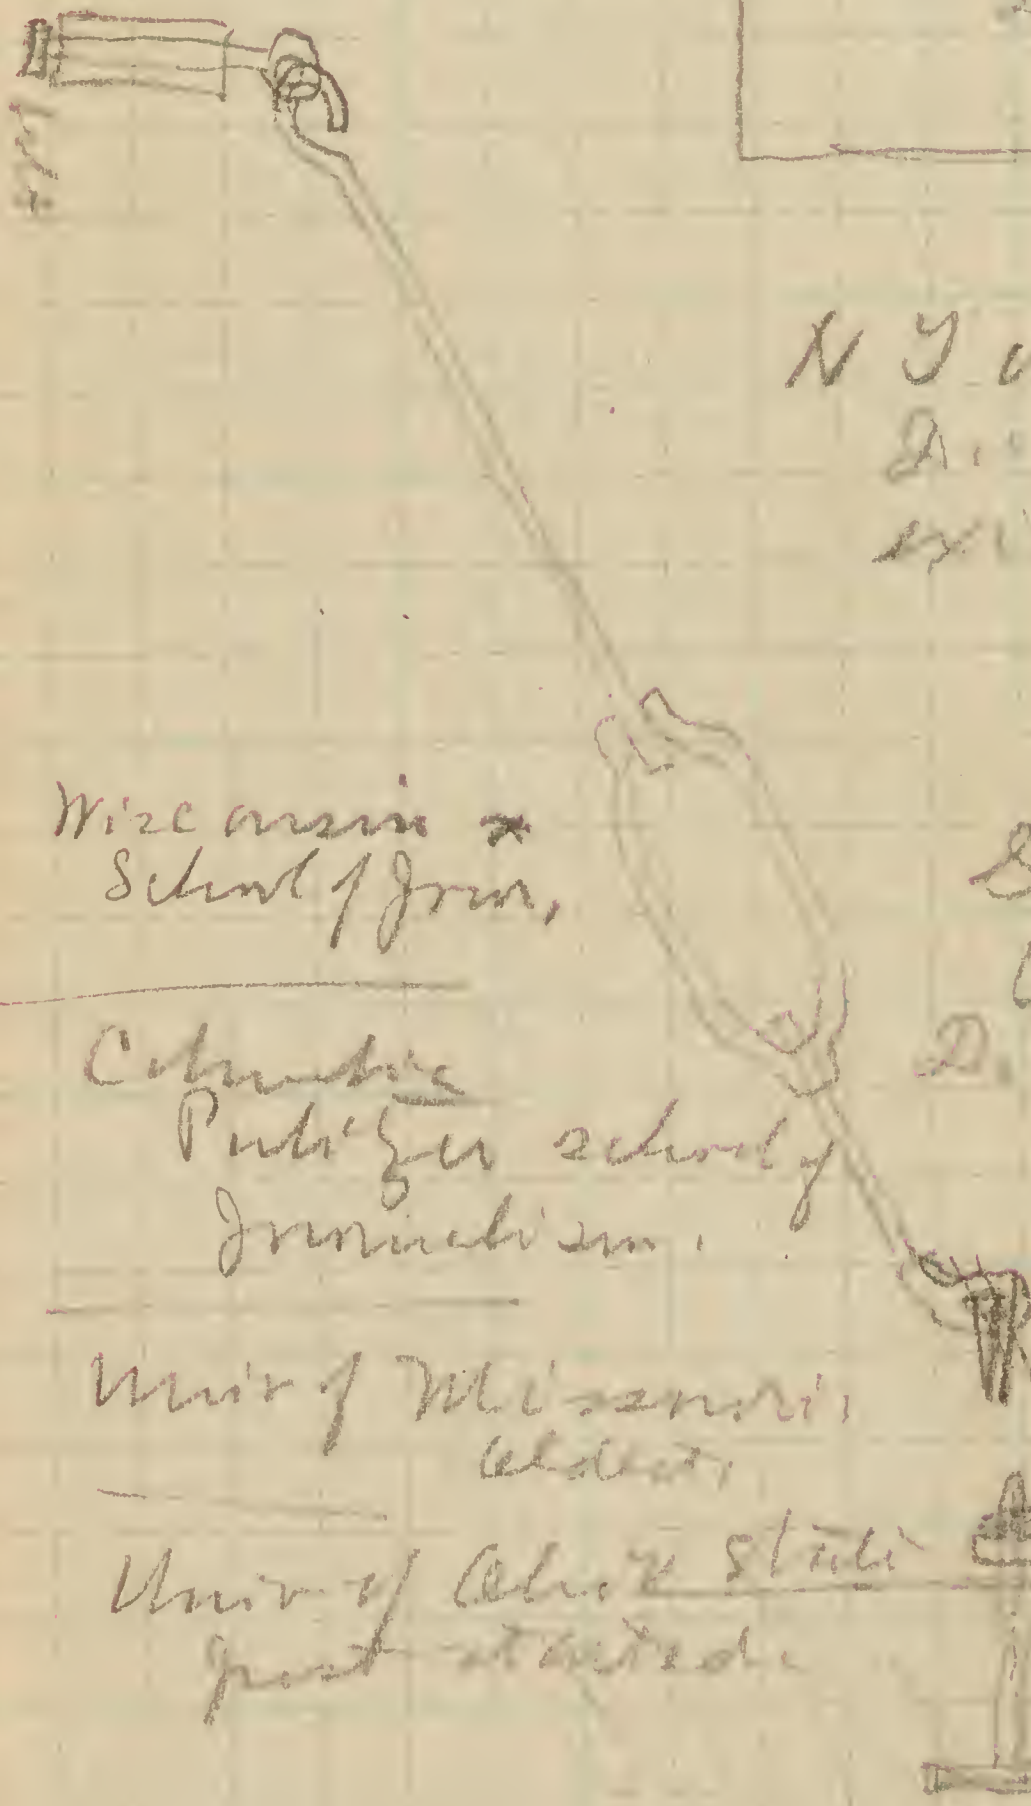 Wisconsin
School of Jour.
Columbia
Pulitzer School of
Journalism.
Univ of Missouri
oldest.
Univ of Ohio State
just started.
N Y
D.